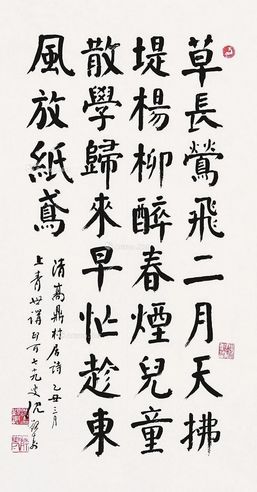 草長鶯飛二月天拂
堤楊柳醉春煙兒童
散學歸來早忙趁東
風放紙鳶
清高鼎村居詩乙丑三月